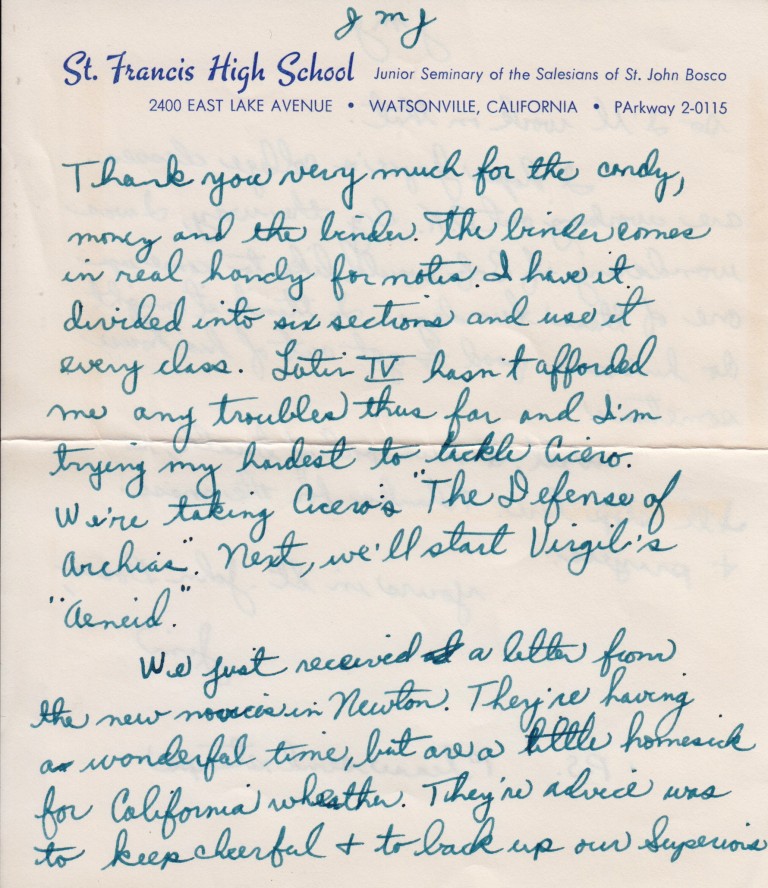 J M J
St. Francis High School Junior Seminary of the Salesians of St. John Bosco
2400 EAST LAKE AVENUE • WATSONVILLE, CALIFORNIA • PArkway 2-0115
Thank you very much for the candy,
money and the binder. The binder comes
in real handy for notes. I have it
divided into six sections and use it
every class. Latin IV hasn't afforded
me any troubles thus far and I'm
trying my hardest to tackle Cicero.
We're taking Cicero's "The Defense of
Archias". Next, we'll start Virgil's
"Aeneid."
We just received a letter from
the new novices in Newton. They're having
a wonderful time, but are a little homesick
for California wheather. They're advice was
to keep cheerful + to back up our Superiors